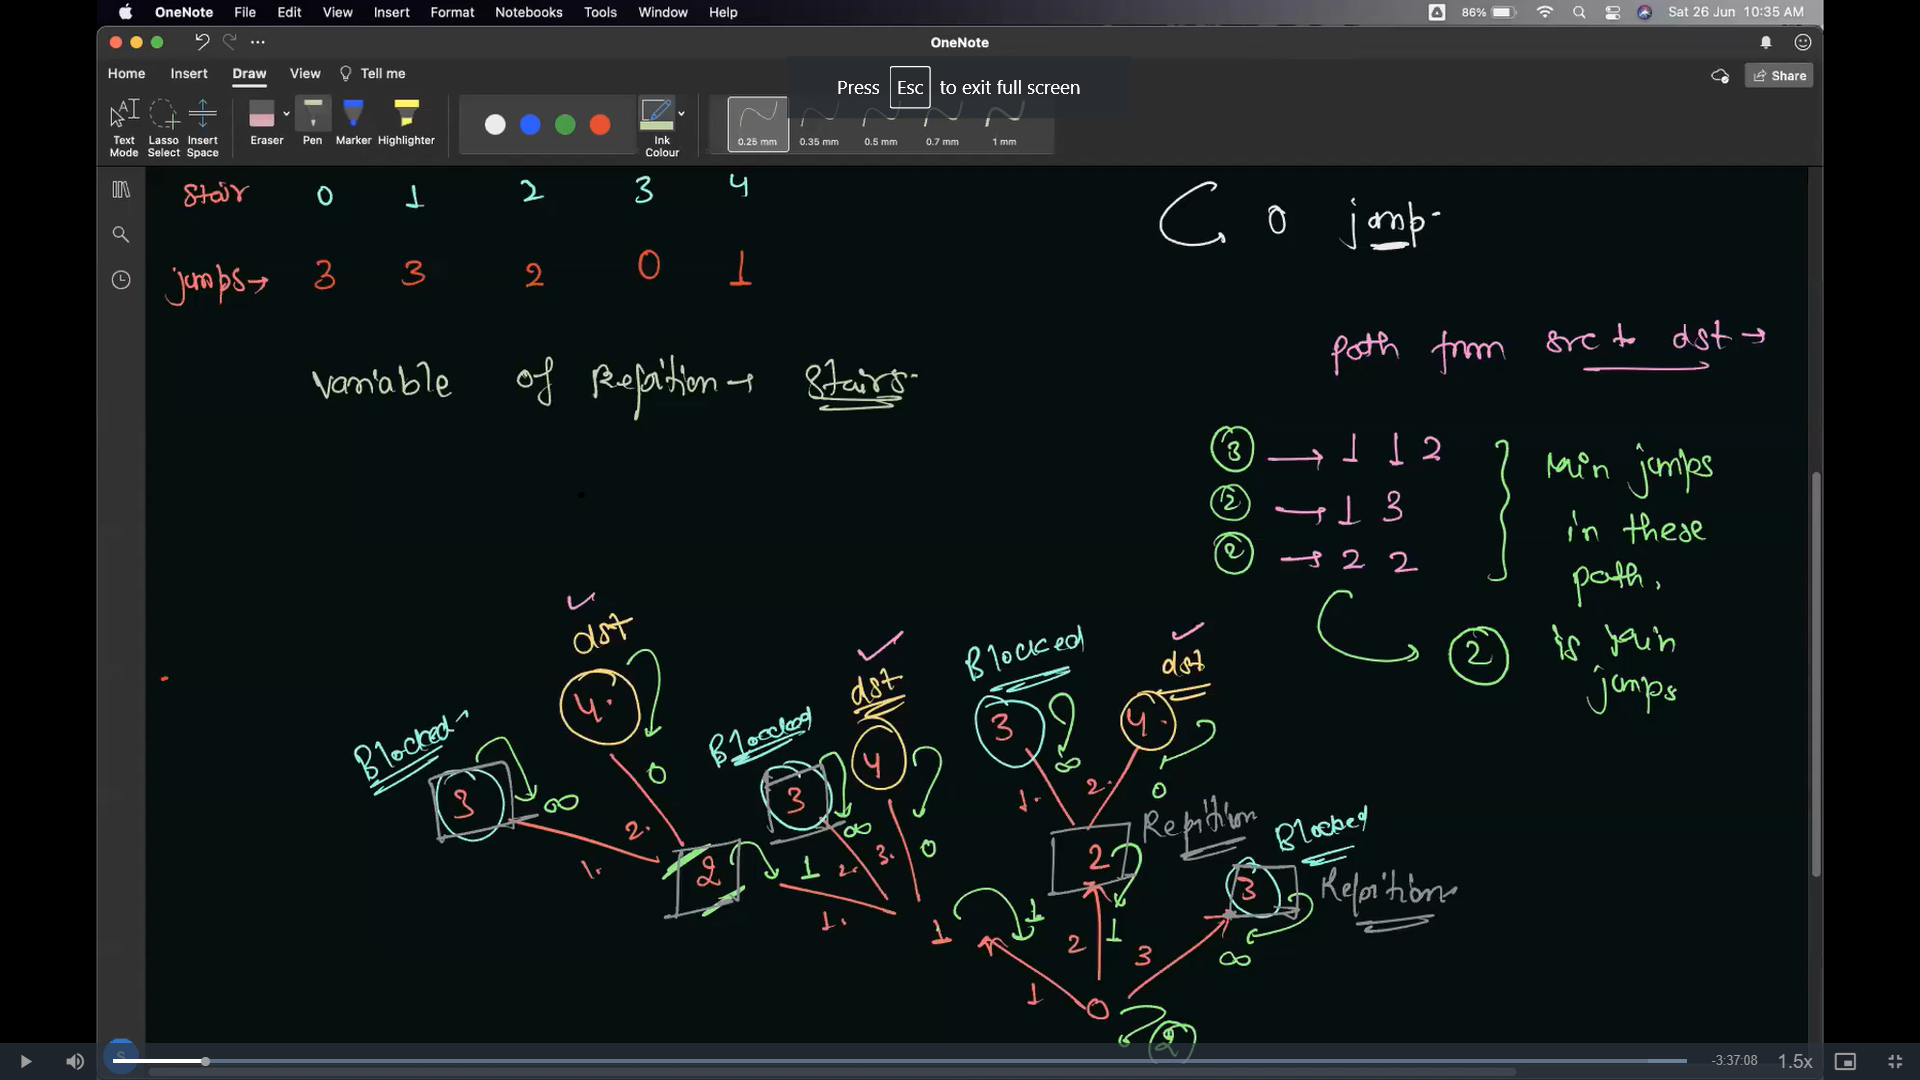 OneNote File Edit View Insert Format Notebooks Tools Window Help 86% Sat 26 Jun 10:35 AM
OneNote
Home Insert Draw View Tell me Share
Press Esc to exit full screen
Text Mode Lasso Select Insert Space Eraser Pen Marker Highlighter Ink Colour 0.25 mm 0.35 mm 0.5 mm 0.7 mm 1 mm
Stair 0 1 2 3 4
0 jmp.
jumps→ 3 3 2 0 1
path from src to dst →
variable of Repition → Stairs.
3 → 1 1 2
2 → 1 3
2 → 2 2
min jumps
in these
path.
2 is min
jumps
dst
4.
0
Blocked
3
∞
2.
1.
2
1
1.
Blocked
3
∞
2.
dst
4
0
3.
1
1
Blocked
3
∞
1.
dst
4.
0
2.
2
1
Repition
Blocked
3
∞
Repition
1
2
3
0
2
S
-3:37:08 1.5x